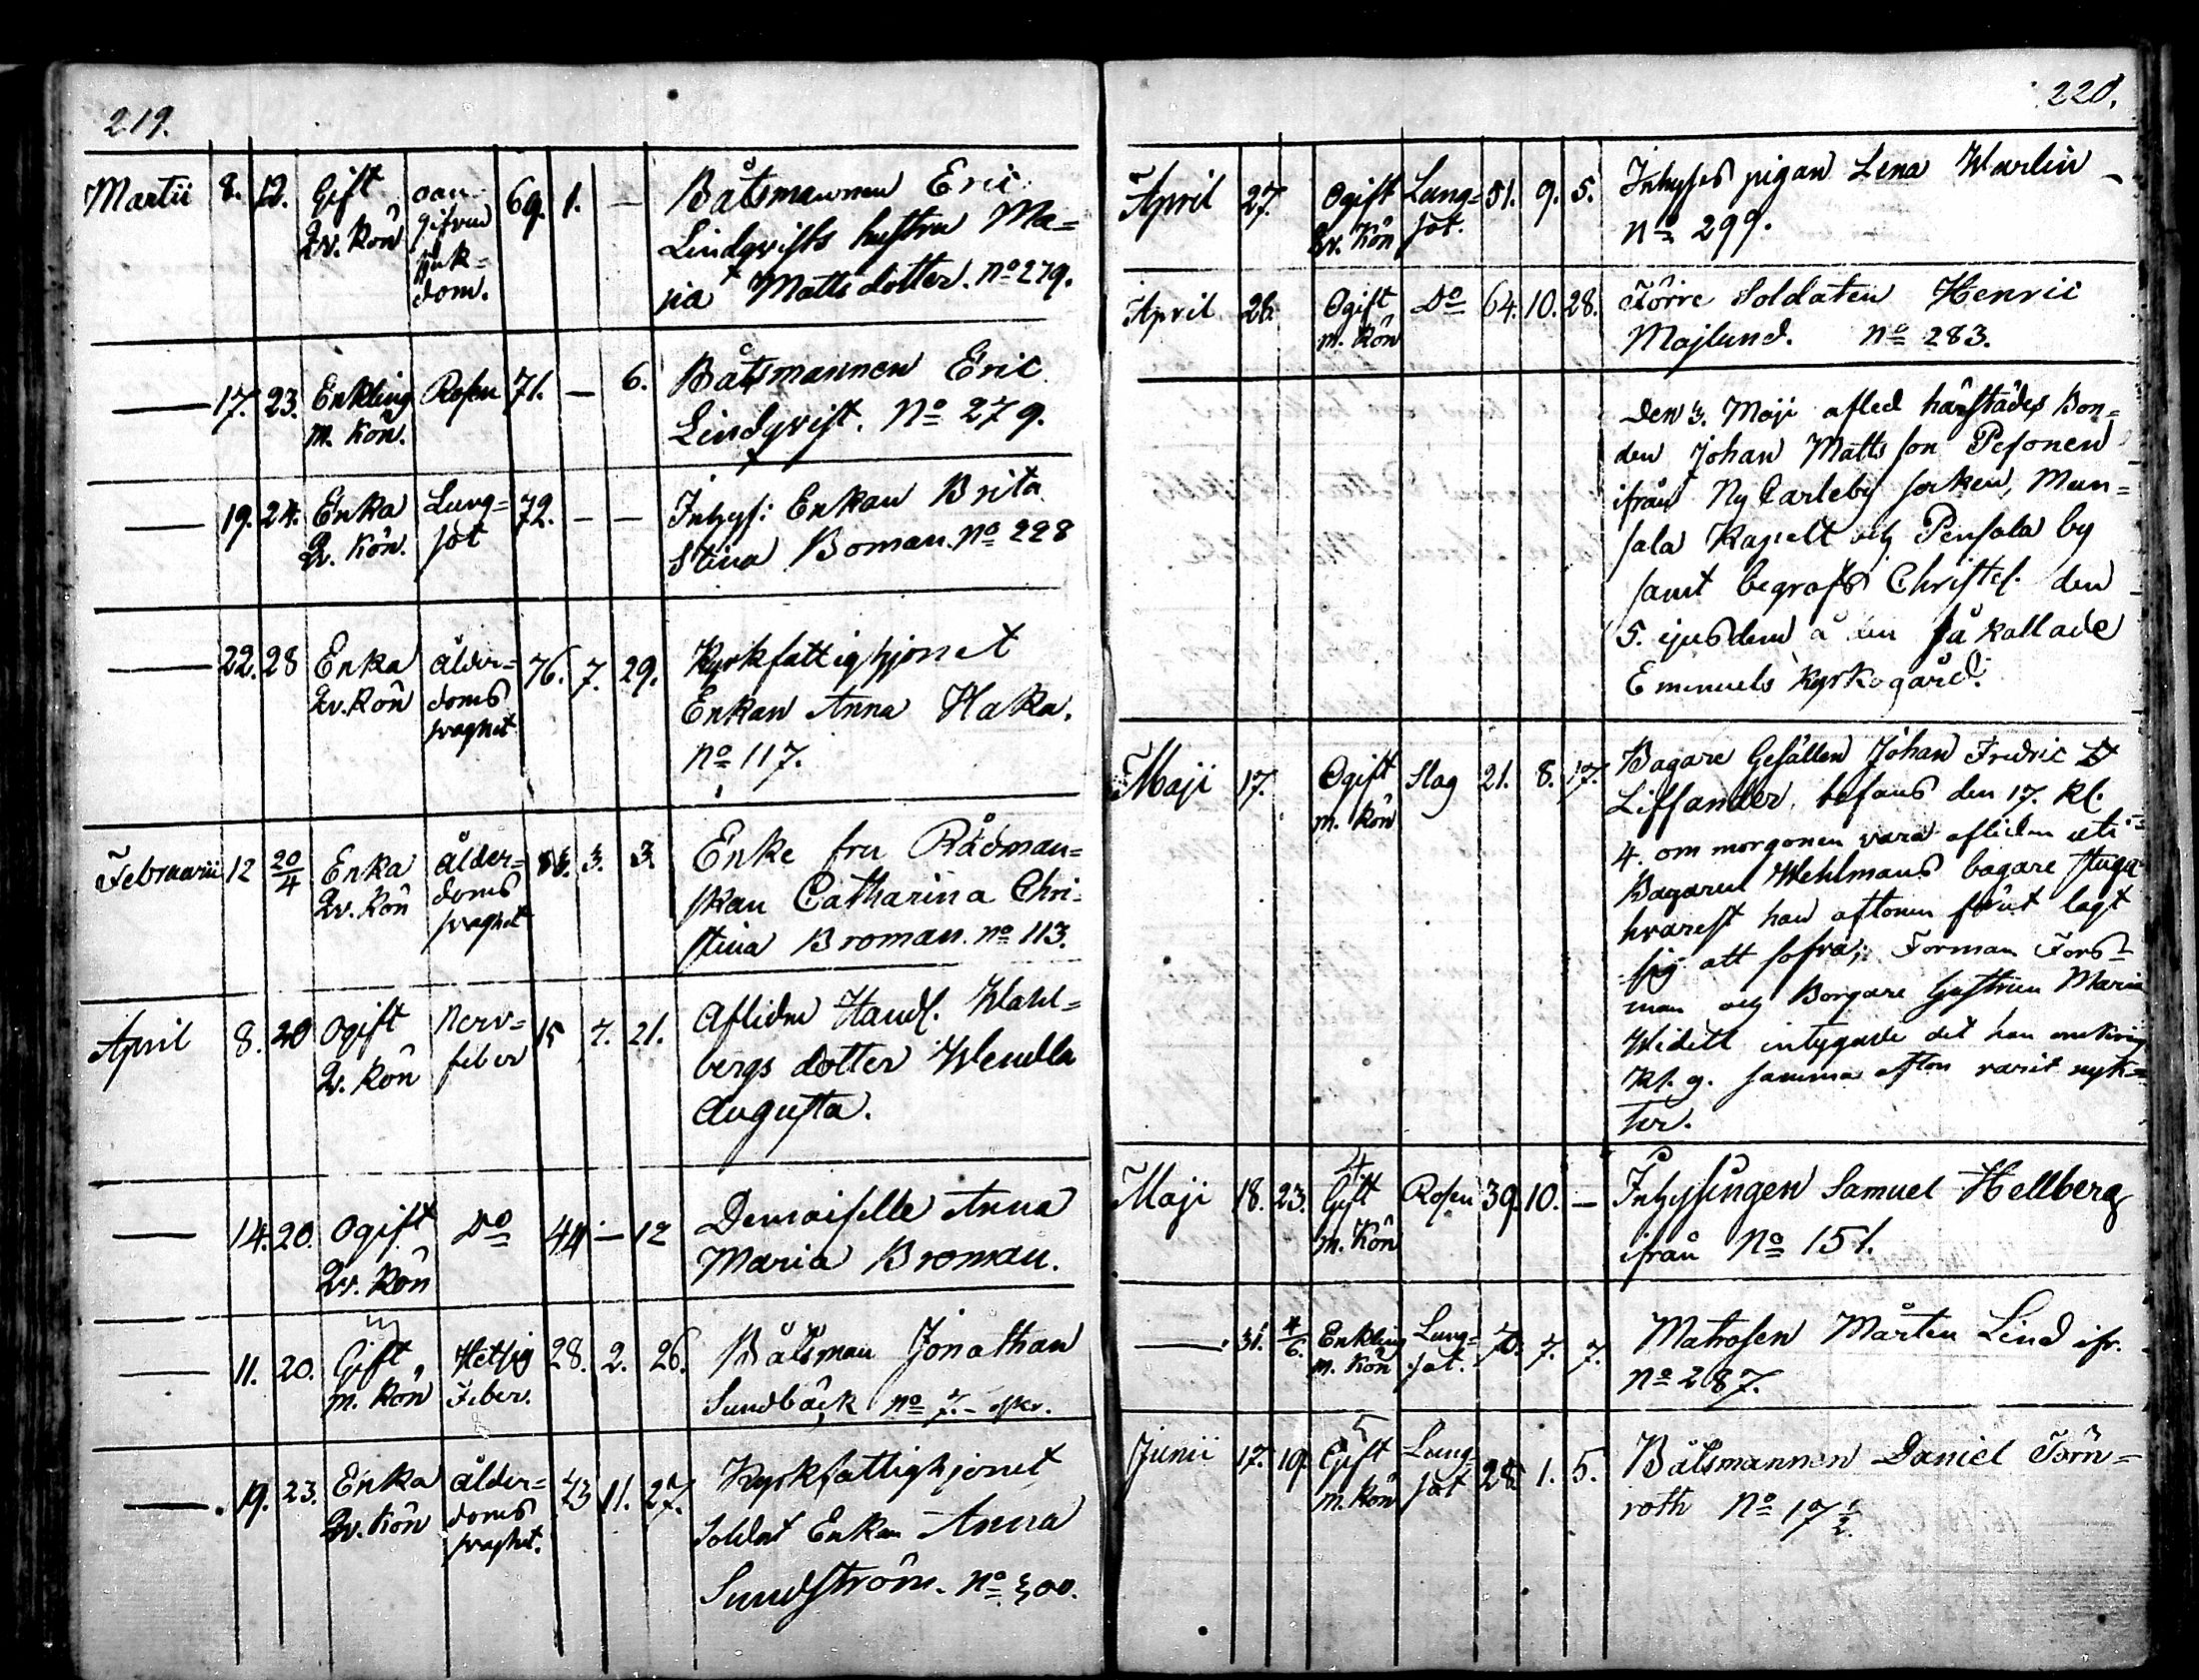 219.
Martii 8. 12. Gift oan- 69. 1. — Båtsmannen Eric
Qv. Kön gifven Lindqvists hustru Ma=
sjuk= ria Matts dotter. No 279.
dom.
— 17. 23. Enkling Rosen 71. — 6. Båtsmannen Eric
m. Kön. Lindqvist. No 279.
— 19. 24. Enka Lung= 72. — — Inhys: Enkan Brita
Qv. Kön. sot Stina Boman. No 228
— 22. 28 Enka ålder= 76. 7. 29. Kyrkfattighjonet
Qv. Kön doms Enkan Anna Haka.
svaghet No 117.
Februarii 12 20/4 Enka ålder= 3. 3. Enke fru Rådman=
Qv. Kön doms skan Catharina Chri-
svaghet stina Broman. No 113.
April 8. 20 Ogift Nerv= 15 7. 21. Aflidne Handl. Wahl=
Qv. Kön feber bergs dotter Wendla
Augusta.
— 14. 20. Ogift Do 44 — 12 Demoiselle Anna
Qv. Kön Maria Broman.
— 11. 20. Gift Hetsig 28. 2. 26. Båtsman Jonathan
m. Kön Feber. Sundbäck No 7.
— 19. 23. Enka ålder= 73 11. 27. Kyrkfattighjonet
Qv. Kön doms Soldat Enkan Anna
svaghet. Sundström. No 300.
220.
April 27. Ogift Lung= 51. 9. 5. Inhyses pigan Lena Warlin
Qv. Kön sot. No 299.
April 28. Ogift Do 64. 10. 28. Förre Soldaten Henric
m. Kön Majlund. No 283.
Den 3. Maji afled härstädes Bon=
den Johan Matts son Pesonen
ifrån Ny Carleby socken, Mun=
sala Kapell och Pensala by
samt begrofs Christel. den
5. ejusdem å den så kallade
Emanuels Kyrkogård.
Maji 17. Ogift Slag 21. 8. 17. Bagare Gesällen Johan Fredric
m. Kön Liffander, befans den 17. Kl.
4. om morgonen vara afliden uti
Bagaren Wehlmans bagare stuga
hvarest han aftonen förut lagt
sig att sofva; Forman Fors=
man och Borgare hustrun Maria
Widell intygade det han omkring
Kl. 9. samma afton varit nyk=
ter.
Maji 18. 23. Gift Rosen 39. 10. — Inhysingen Samuel Hellberg
m. Kön ifrån No 151.
— 31. 4/6. Enkling Lung= 70. 7. 7. Matrosen Mårten Lind ifr.
m. Kön sot. No 287.
Junii 17. 19. Gift Lung 28 1. 5. Båtsmannen Daniel Törn=
m. Kön sot roth No 17 1/2